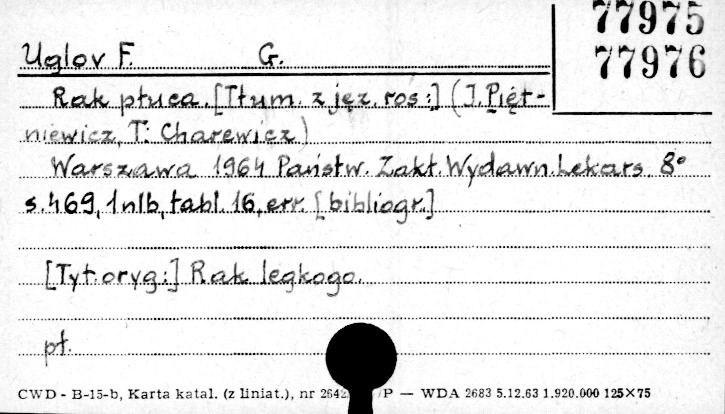 77975
77976
Uglov F. G.
Rak płuca. [Tłum. z jęz. ros:] (J. Pięt-
niewicz, T. Charewicz)
Warszawa 1964 Państw. Zakł. Wydawn. Lekars. 8°
s. 469, 1 nlb, tabl. 16, err. [bibliogr.]
[Tyt. oryg:] Rak legkogo.
pł.
CWD - B-15-b, Karta katal. (z liniat.), nr 2642 /P — WDA 2683 5.12.63 1.920.000 125×75